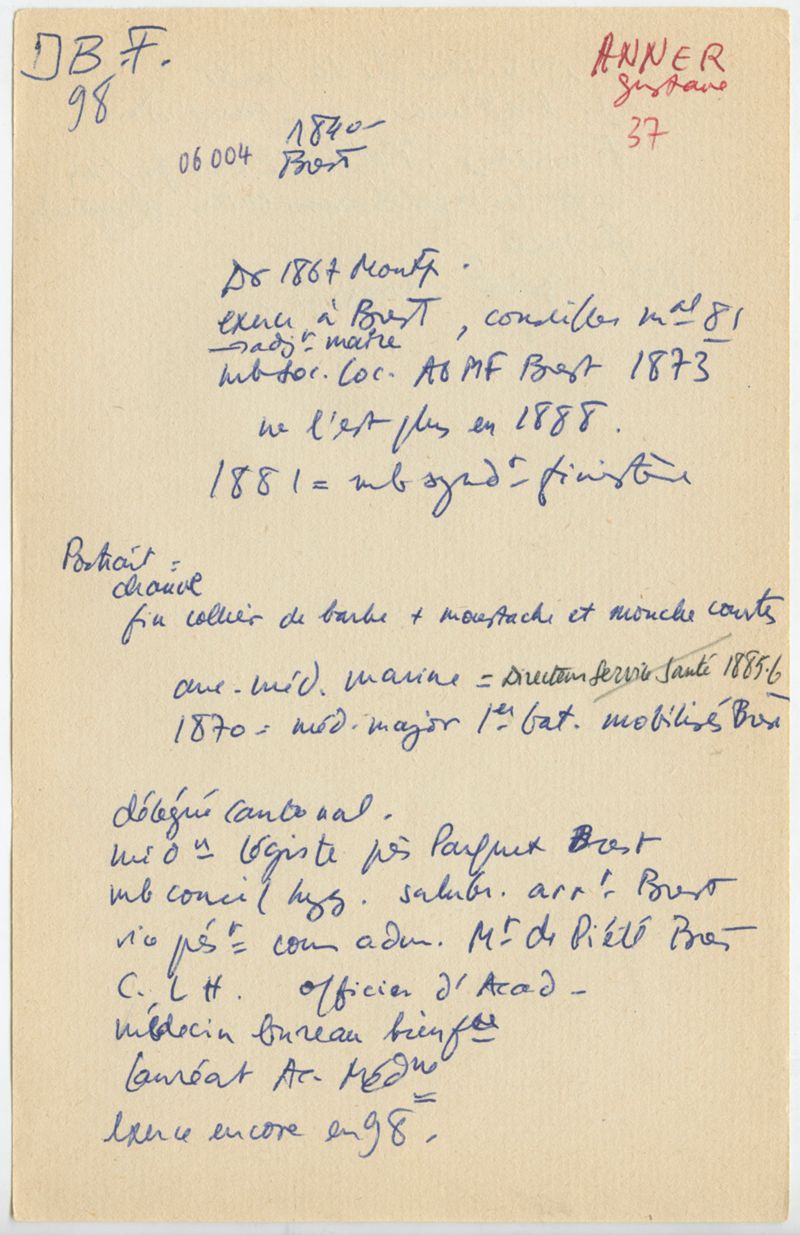 D B F.
98
ANNER
Gustave
37
06 004
1840-
Brest
Dr 1867 Montp.
exerce à Brest, conseiller mal 81
→ adjt maire
mb soc. loc. AGMF Brest 1873
ne l'est plus en 1888.
1881 = mb syndt finistère
Portrait =
chauve
fin collier de barbe + moustache et mouche courtes
anc. méd. marine = Directeur Service Santé 1885-6
1870 = méd. major 1er bat. mobilisés Brest
délégué cantonal.
médn légiste près Parquet Brest
mb conseil hyg. salubr. arrt Brest
vice prést com adm. Mt de Piété Brest
C. L H. officier d'Acad -
médecin bureau bienfce
Lauréat Ac. Médne
exerce encore en 98.